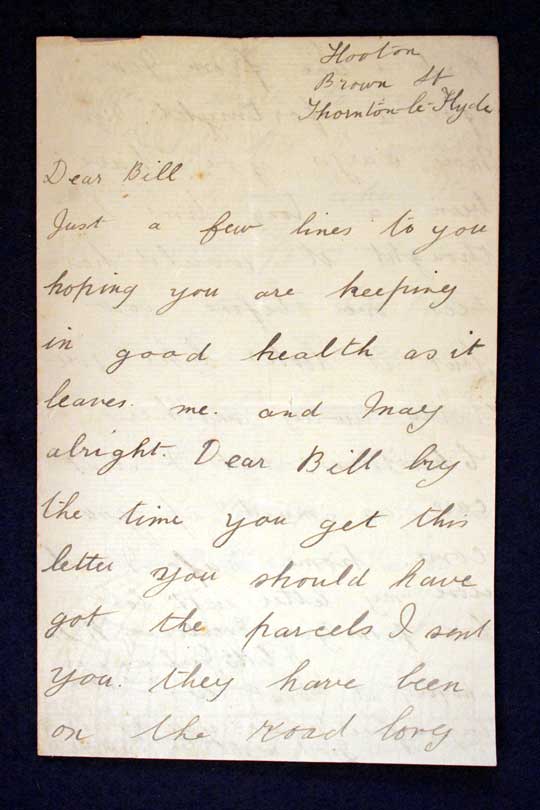 Hooton
Brown St
Thornton-le-Hyde
Dear Bill
Just a few lines to you
hoping you are keeping
in good health as it
leaves. me. and May
alright. Dear Bill by
the time you get this
letter you should have
got the parcels I sent
you. they have been
on the road long